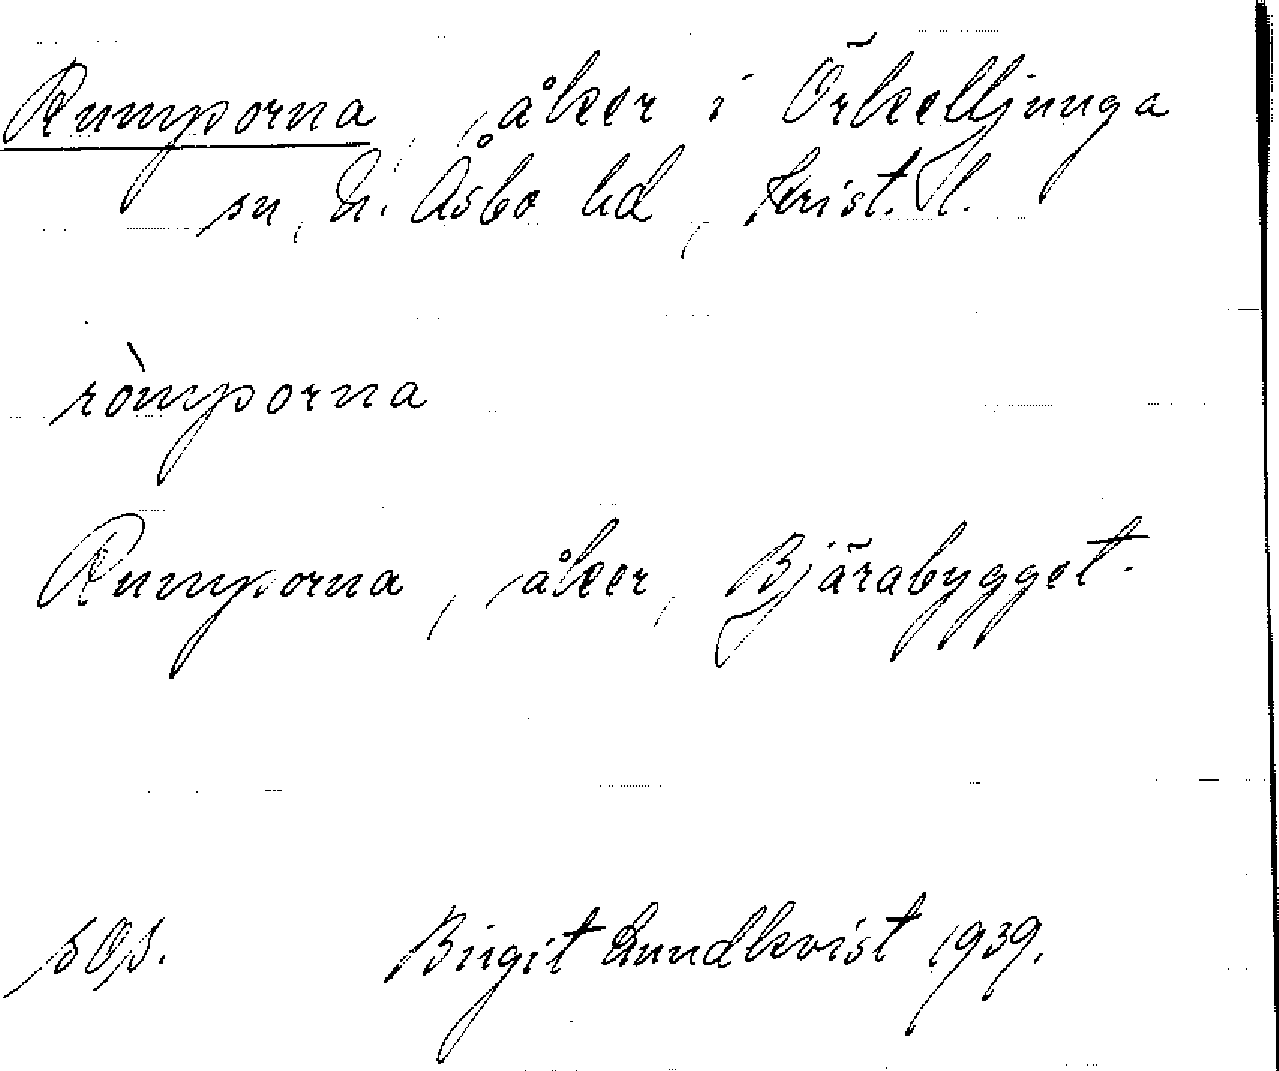 Rumporna, åker i Örkelljunga
sn, N. Åsbo hd, Krist. l.
ròmporna
Rumporna, åker, Bjärabygget.
Birgit Lundkvist 1939.